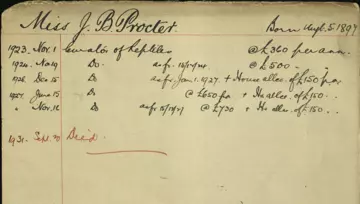 Miss J. B. Procter. Born Aug. 5. 1897
1923. Nov. 1 Curator of Reptiles @ £360 per ann.
1924. Nov Do. as fr. @ £500 -
1926. Dec 15 Do as fr. Jan. 1. 1927. + House alloc. of £150 p.a.
1927. June 15 Do @ £650 pa + Ho alloc. of £150 . .
" Nov. 16 Do as fr. @ £730 + Ho alloc. of £150 . .
1931. Sept. 20 Died.